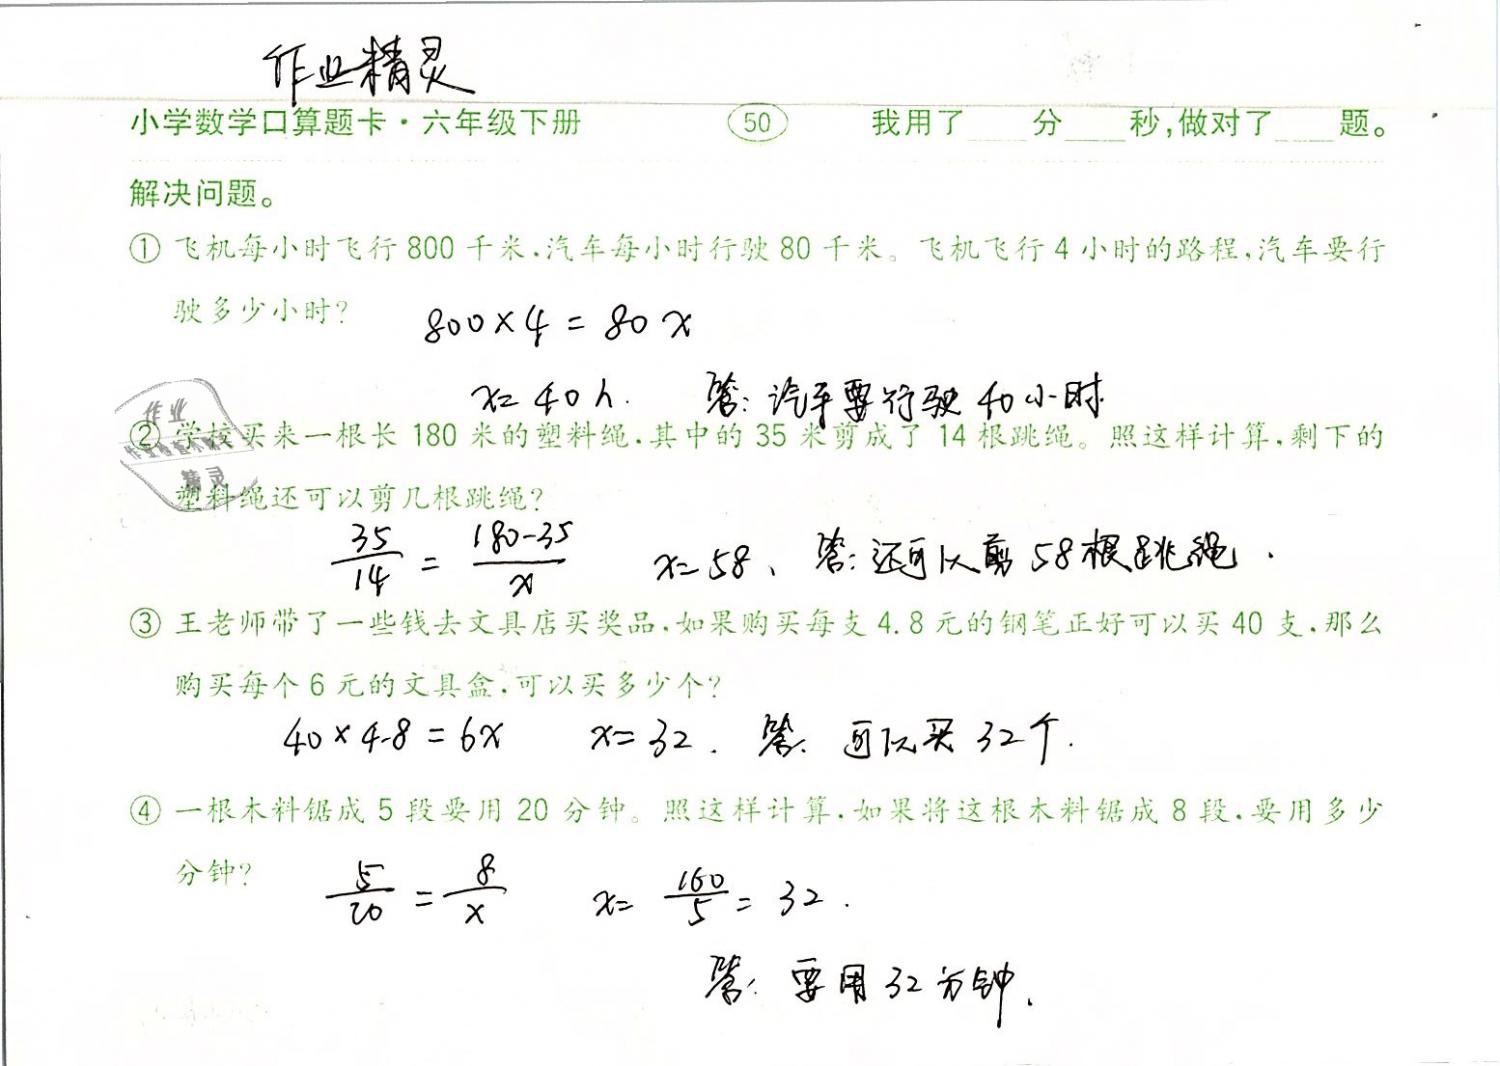 作业精灵
小学数学口算题卡·六年级下册 50 我用了____分____秒,做对了____题。
解决问题。
① 飞机每小时飞行 800 千米,汽车每小时行驶 80 千米。飞机飞行 4 小时的路程,汽车要行
驶多少小时?
800×4=80x
x=40h. 答:汽车要行驶40小时
作业
精灵
② 学校买来一根长 180 米的塑料绳,其中的 35 米剪成了 14 根跳绳。照这样计算,剩下的
塑料绳还可以剪几根跳绳?
35/14 = (180-35)/x x=58、 答:还可以剪58根跳绳.
③ 王老师带了一些钱去文具店买奖品,如果购买每支 4.8 元的钢笔正好可以买 40 支,那么
购买每个 6 元的文具盒,可以买多少个?
40×4.8=6x x=32. 答: 可以买32个.
④ 一根木料锯成 5 段要用 20 分钟。照这样计算,如果将这根木料锯成 8 段,要用多少
分钟?
5/20 = 8/x x= 160/5 = 32.
答: 要用32分钟.